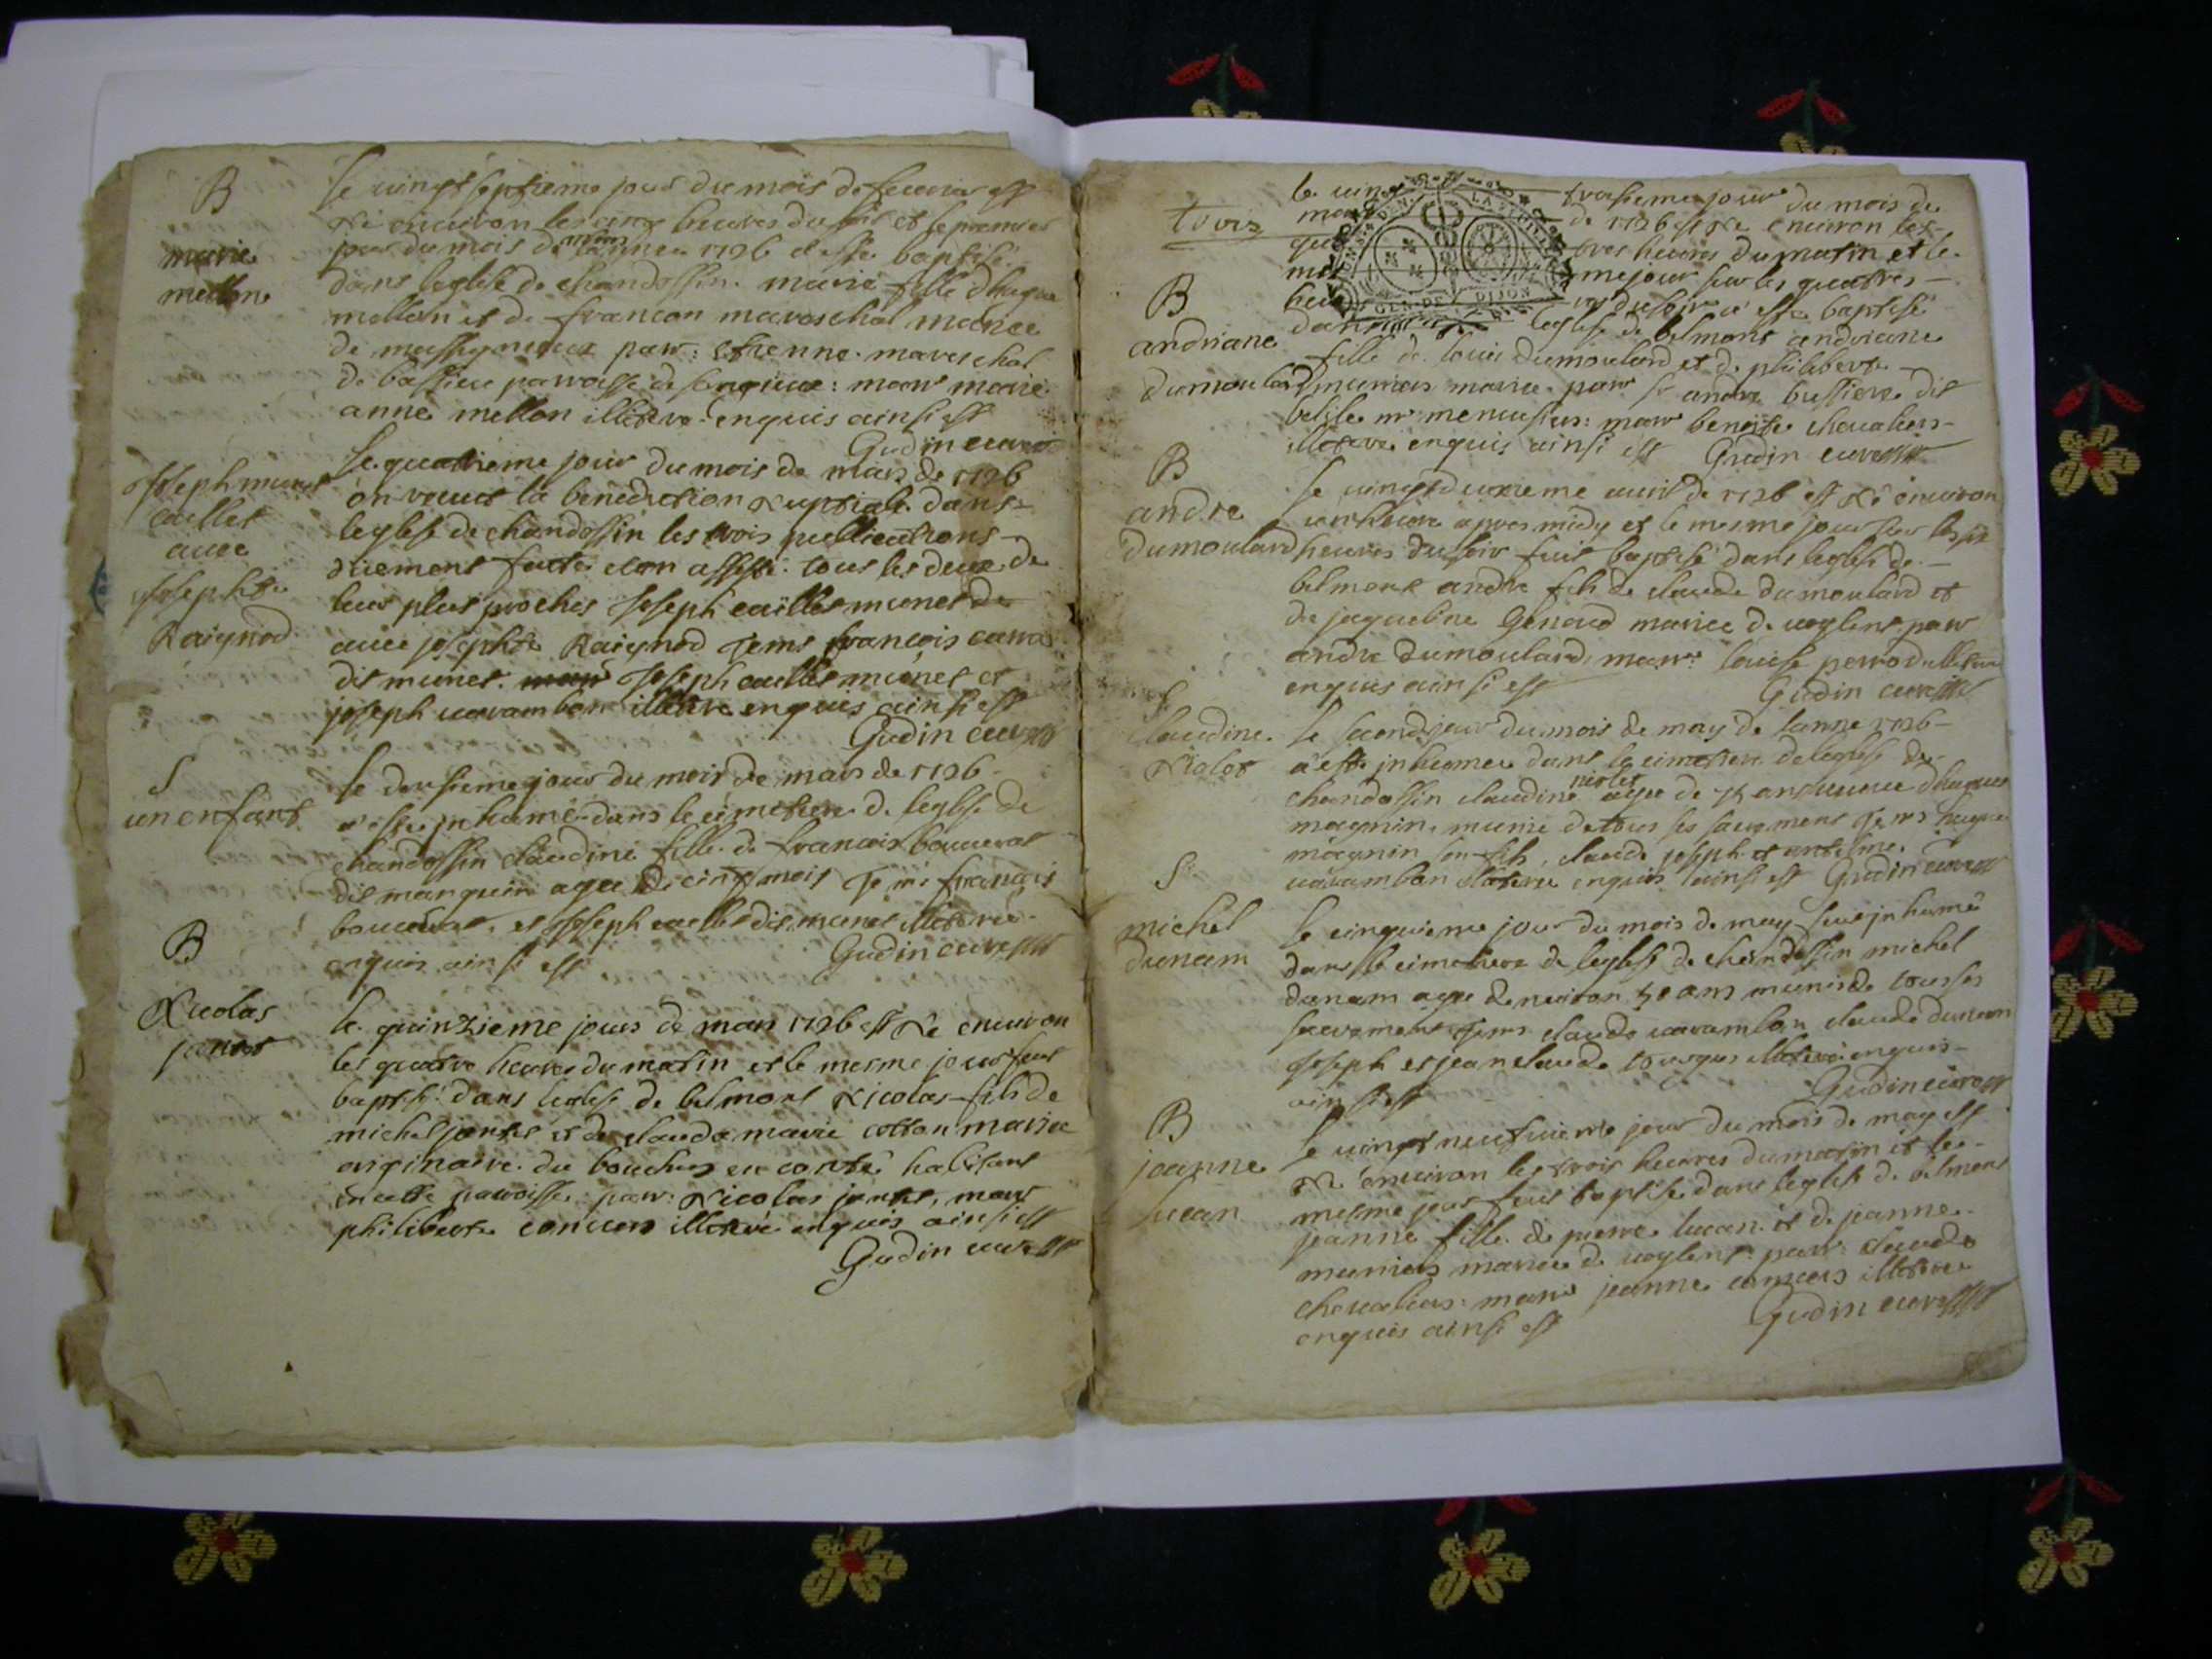 B
marie
mellon
le vingt septieme jour du mois de fevrier est
Né environ les cinq heures du soir et le premier
jour du mois de mars lannee 1726 a esté baptisé
dans leglise de chandossin marie fille dhugue
mellon et de francon mareschal mariee
de massigneux parr: etienne mareschal
de bassieu parroisse de songieux: marr marie
anne mellon illiteré enquis ainsi est
Gudin curé
joseph munet
caillet
avec
josephte
Raignod
le quatrieme jour du mois de mars de 1726
on receut la benediction Nuptiale dans
leglise de chandossin les trois publications
duement faite et on assisté tous les deux de
leur plus proches Joseph caillet munet de
avec josephte Raignod Tems francois carra
dit munet Joseph caillet munet et
joseph varambon illiteré enquis ainsi est
Gudin curé
S
un enfant
le dousieme jour du mois de mars de 1726
a esté inhumé dans le cimetiere de leglise de
chandossin claudine fille de francois bouuerat
dit manguin agee de cinq mois Tems francois
bouuerat et Joseph caillet dit munet illiteré
enquis ainsi est
Gudin curé
B
Nicolas
jantet
le quinzieme jour de mars 1726 est Né environ
les quatre heures du matin et le mesme jour fut
baptisé dans leglise de belmont Nicolas fils de
michel jantet et de clauda marie cotton mariee
originaire du bouchoz en conté habitant
en cette paroisse parr: Nicolas jantet, marr
philiberte convers illiteré enquis ainsi est
Gudin curé
trois
B
andriane
dumoulard
le vingt troisieme jour du mois de
de 1726 est Né environ les
tres heures du matin et le
me jour sur les quatres
res du soir a esté baptisé
dans leglise de belmont andriane
fille de louis dumoulard et de philiberte
munier mariee parr sr andre bussiere dit
belile mr menuisier: marr benoite chevalier
illiteré enquis ainsi est Gudin curé
B
andre
dumoulard
le vingt deuxieme avril de 1726 est Né environ
une heure apres midy et le mesme jour sur les six
heures du soir fut baptisé dans leglise de
belmont andre fils de claude dumoulard et
de jaqueline Genoud mariee de voglent parr
andre dumoulard, marr: louise perrod illiteré
enquis ainsi est
Gudin curé
S
claudine
Niolet
le second jour du mois de may de lanne 1726
a esté inhumee dans le cimetiere de leglise de
chandossin claudine niolet agee de 75 ans veuve dhugues
magnin, munie de tous ses sacrement Tems hugue
magnin son fils, claude joseph et antelme
varambon illiteré enquis ainsi est Gudin curé
S
michel
dunam
le cinquieme jour du mois de may fut inhumé
dans le cimetiere de leglise de chandossin michel
dunam agee denviron 50 ans munis de tous ses
sacrement Tems claude varambon claude dunam
Joseph et jean claude illiteré enquis
ainsi est
Gudin curé
B
jeanne
lucan
le vingt neufvieme jour du mois de may est
Né environ les trois heures du matin et le
mesme jour fut baptisé dans leglise de belmont
jeanne fille de pierre lucan et de jeanne
munier mariee de voglent parr: claude
chevalier: marr jeanne illiteré
enquis ainsi est
Gudin curé
GEN. DE DIJON